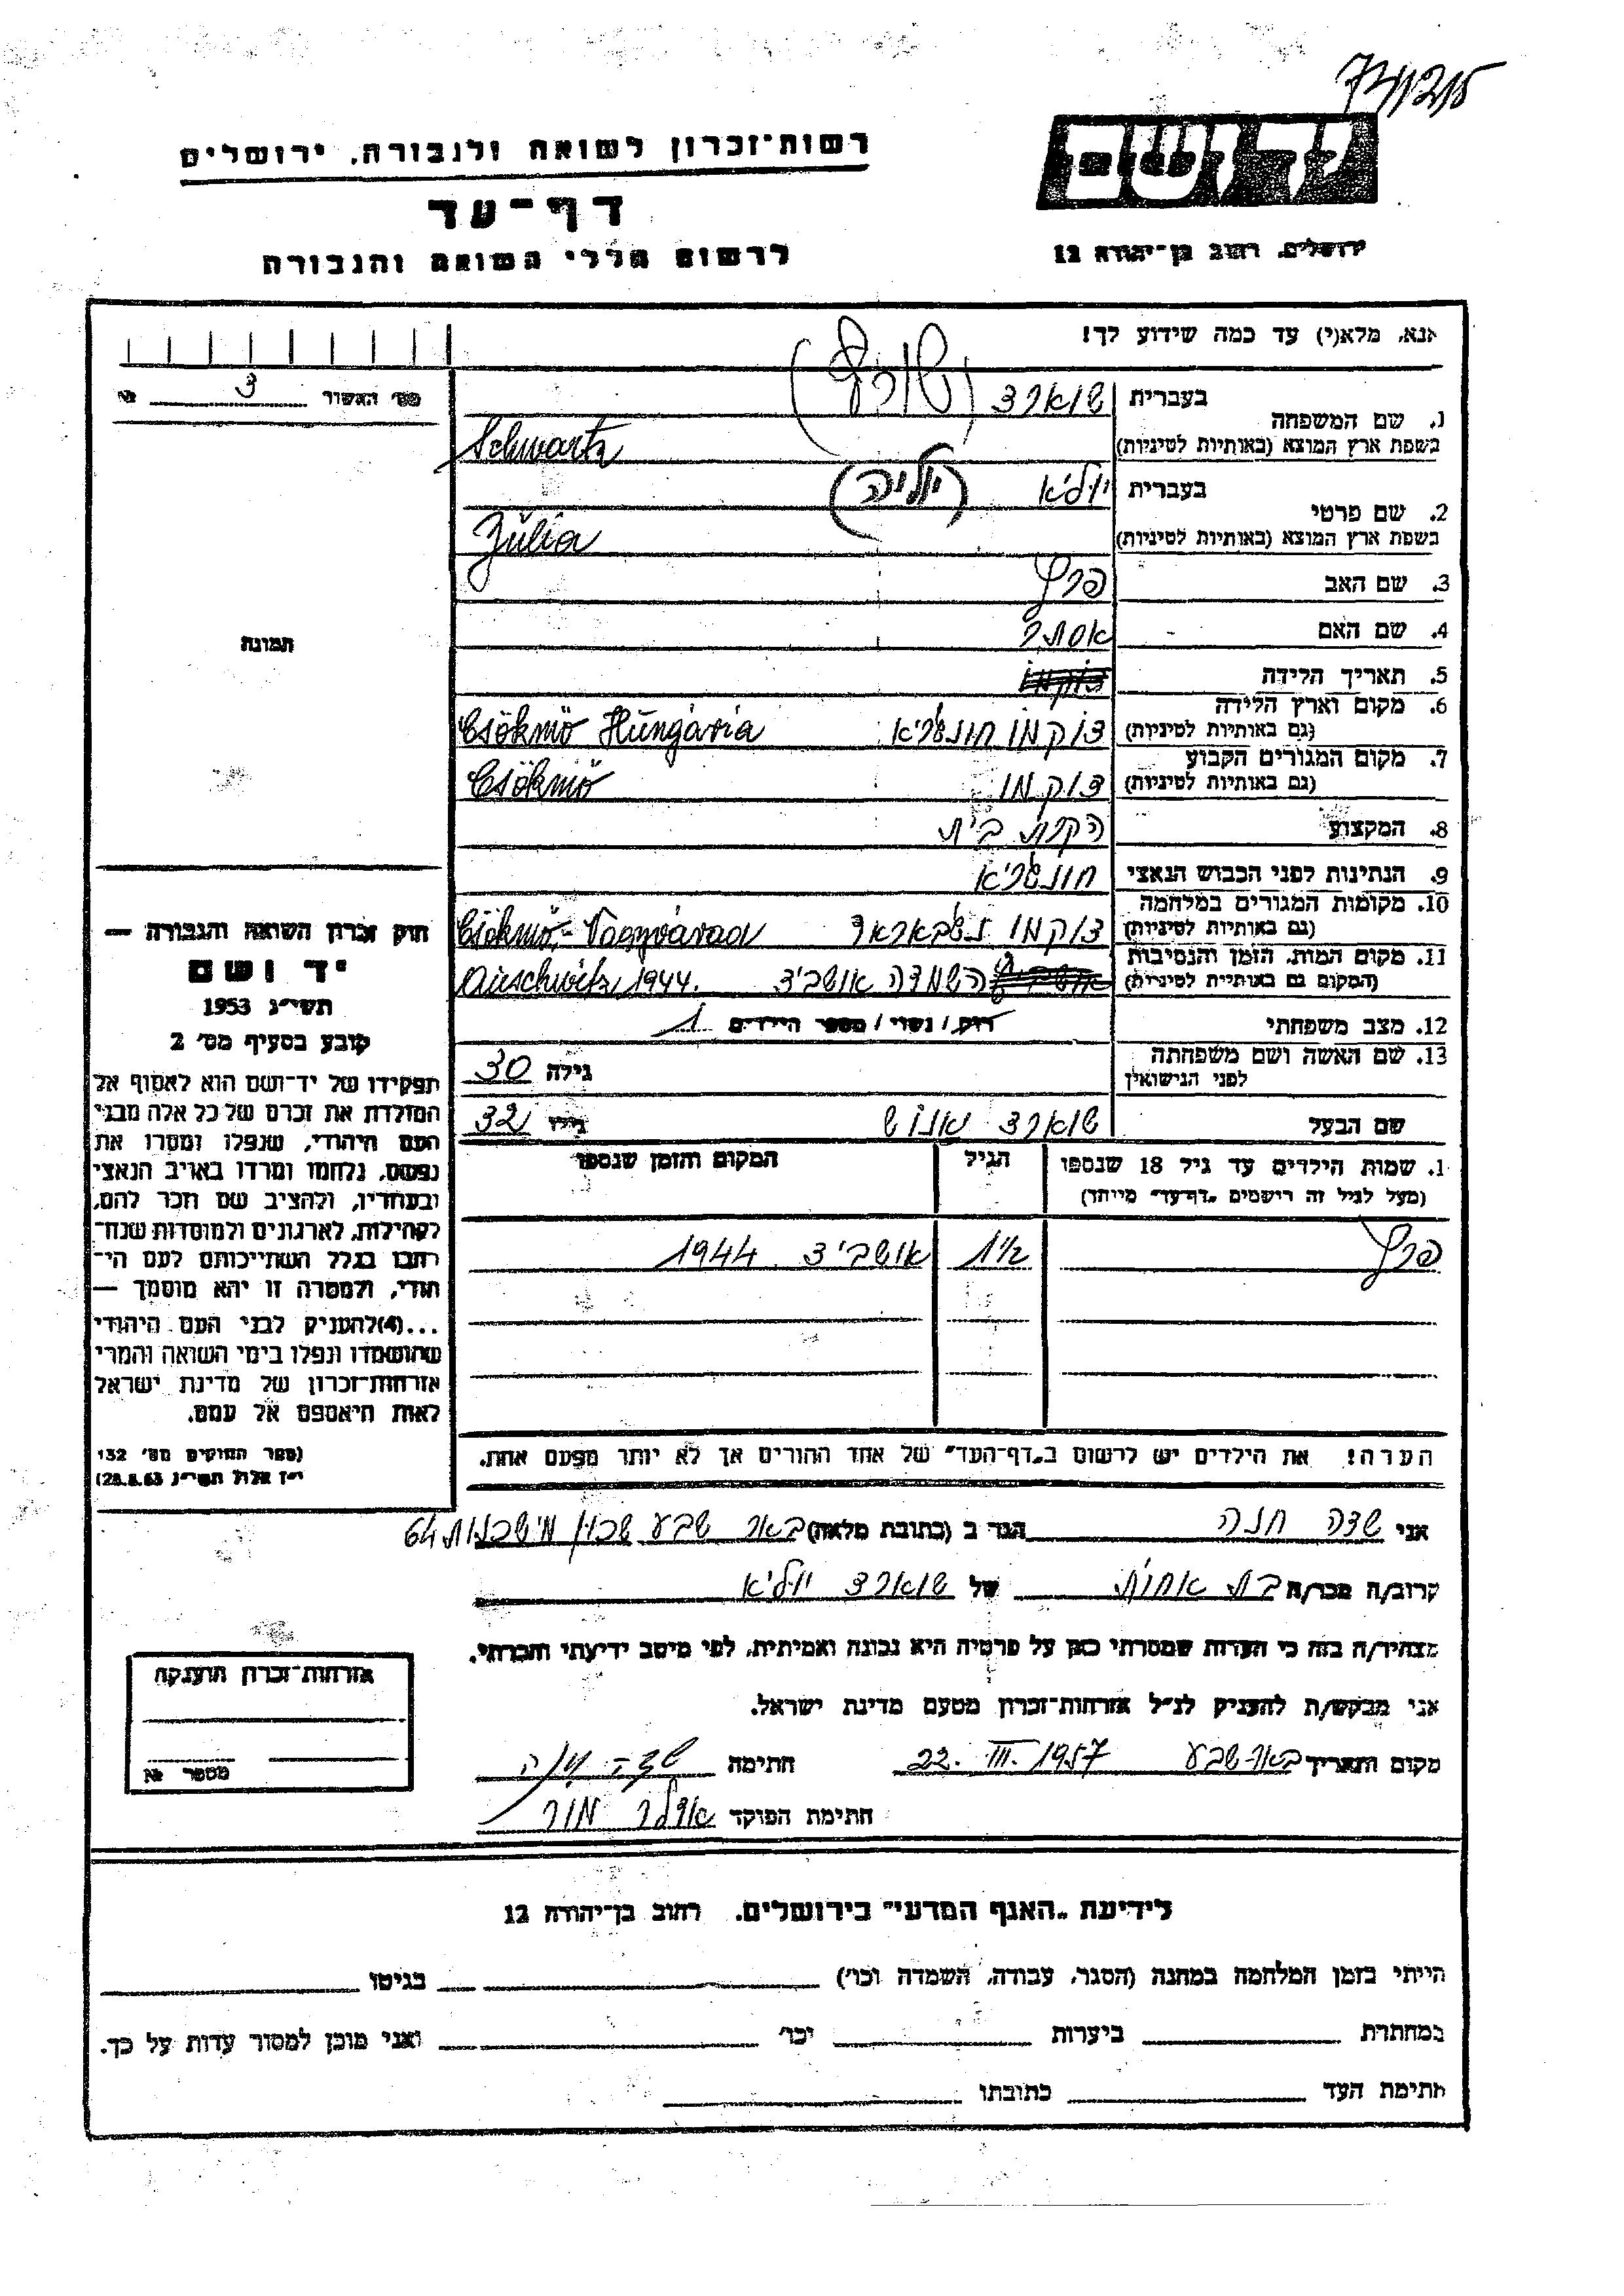 רשות-זכרון לשואה ולגבורה, ירושלים
דף-עד
לרשום חללי השואה והגבורה
יד ושם
ירושלים, רחוב בן-יהודה 12
אנא, מלא(י) עד כמה שידוע לך!
מס' האשור 3 №
תמונה
1. שם המשפחה
בעברית שוארצ (שורץ)
בשפת ארץ המוצא (באותיות לטיניות) Schwartz
2. שם פרטי
בעברית יוליא (יוליה)
בשפת ארץ המוצא (באותיות לטיניות) Júlia
3. שם האב פרץ
4. שם האם אסתר
5. תאריך הלידה
6. מקום וארץ הלידה
(גם באותיות לטיניות) צוקמו חונגריא Csökmő Hungária
7. מקום המגורים הקבוע
(גם באותיות לטיניות) צוקמו Csökmő
8. המקצוע הקרת בית
9. הנתינות לפני הכבוש הנאצי חונגריא
10. מקומות המגורים במלחמה
(גם באותיות לטיניות) צוקמו נגבאראד Csökmő,- Nagyvárad
11. מקום המות, הזמן והנסיבות
(המקום גם באותיית לטיניות) השמדה אושביצ Auschwitz 1944.
12. מצב משפחתי רוק / נשוי / מספר הילדים 1
13. שם האשה ושם משפחתה
לפני הנישואין גילה 30
שם הבעל שוארצ אנוש גילו 32
1. שמות הילדים עד גיל 18 שנספו
(מעל לגיל זה רישמים „דף-עד" מייחד)
הגיל
המקום והזמן שנספו
פרץ 1½ אושביצ 1944
הערה! את הילדים יש לרשום ב„דף-העד" של אחד ההורים אך לא יותר מפעם אחת.
חוק זכרון השואה והגבורה —
יד ושם
תשי"ג 1953
קובע בסעיף מס' 2
תפקידו של יד-ושם הוא לאסוף אל
המולדת את זכרם של כל אלה מבני
העם היהודי, שנפלו ומסרו את
נפשם, נלחמו ומרדו באויב הנאצי
ובעוזריו, ולהציב שם וזכר להם,
לקהילות, לארגונים ולמוסדות שנח-
רבו בגלל השתייכותם לעם הי-
הודי, ולמטרה זו יהא מוסמך —
...(4)להעניק לבני העם היהודי
שהושמדו ונפלו בימי השואה והמרי
אזרחות-זכרון של מדינת ישראל
לאות היאספם אל עמם.
(ספר החוקים מס' 132
י"ז אלול תשי"ג 28.8.53)
אני שדה חנה הגר ב (כתובת מלאה) באר שבע שכון מישכנות 64
קרוב/ה מכר/ה בת אחות של שוארצ יוליא
מצהיר/ה בזה כי העדות שמסרתי כאן על פרטיה היא נכונה ואמיתית, לפי מיטב ידיעתי והכרתי.
אני מבקש/ת להעניק לנ"ל אזרחות-זכרון מטעם מדינת ישראל.
מקום ותאריך באר-שבע 22. III. 1957 חתימה שדה חנה
חתימת הפוקד אדלר מור
אזרחות-זכרון הוענקה
מספר №
לידיעת „האגף המדעי" בירושלים, רחוב בן-יהודה 12
הייתי בזמן המלחמה במחנה (הסגר, עבודה, השמדה וכו') בגיטו
במחתרת ביערות וכו' ואני מוכן למסור עדות על כך.
חתימת העד כתובתו